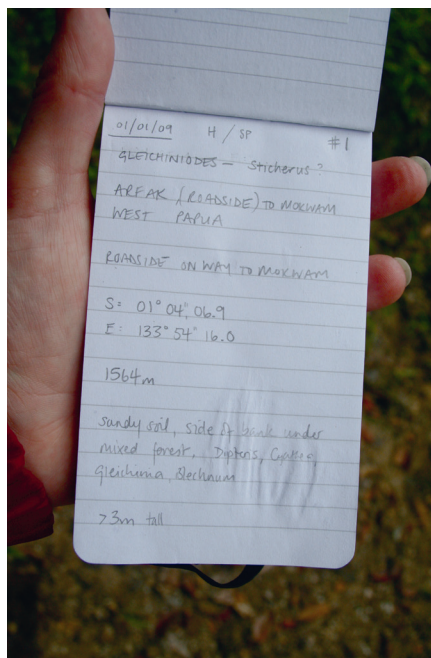 01/01/09 H / SP #1
GLEICHINIODES — Sticherus?
ARFAK (ROADSIDE) TO MOKWAM
WEST PAPUA
ROADSIDE ON WAY TO MOKWAM
S: 01° 04' 06.9
E: 133° 54' 16.0
1564m
sandy soil, side of bank under
mixed forest, Dipteris,
Gleichinia, Blechnum
>3m tall